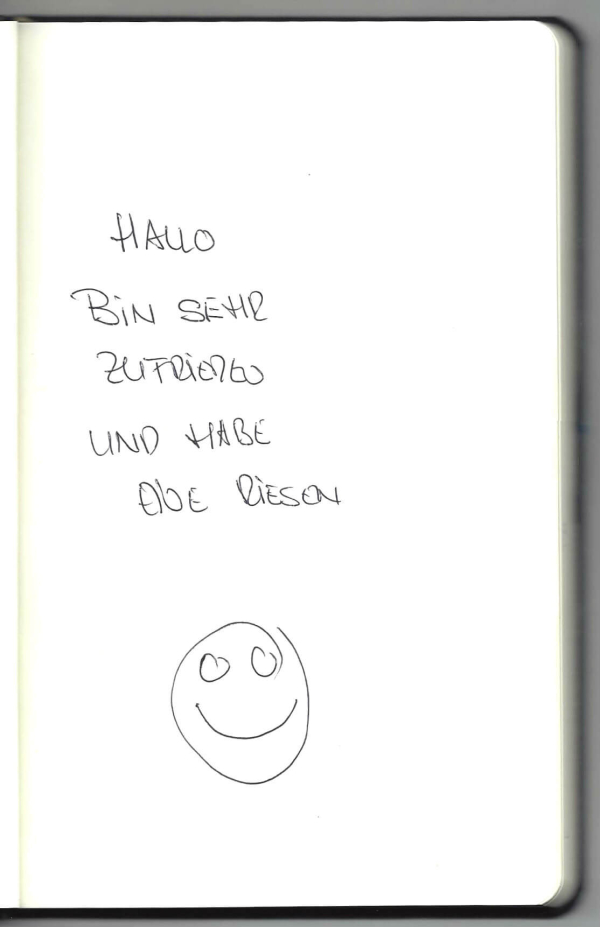 HALLO
BIN SEHR
ZUFRIEDEN
UND HABE
EINE RIESEN